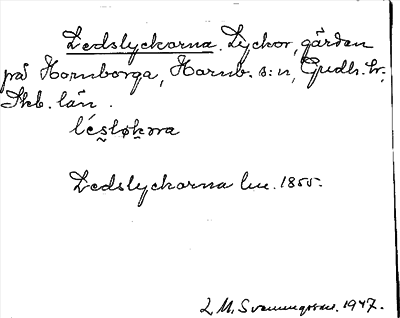 Ledslyckorna. Lyckor, gården
på Hornborga, Hornb. s:n, Gudh. hr,
Skb. län.
lésløkɷra
Ledslyckorna lm. 1855.
L M, Svenungsson. 1947.